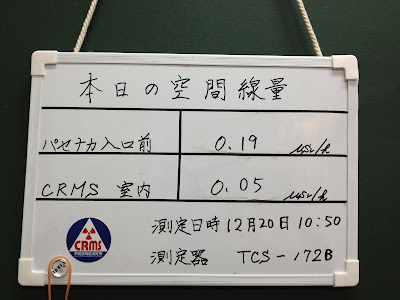 本日の空間線量
パセナカ入口前 0.19 μSv/h
CRMS 室内 0.05 μSv/h
測定日時 12月20日 10:50
測定器 TCS-172B
CRMS